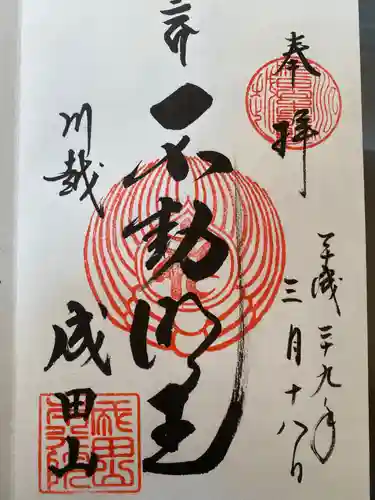 奉拝
平成二十九年
三月十八日
不動明王
川越
成田山